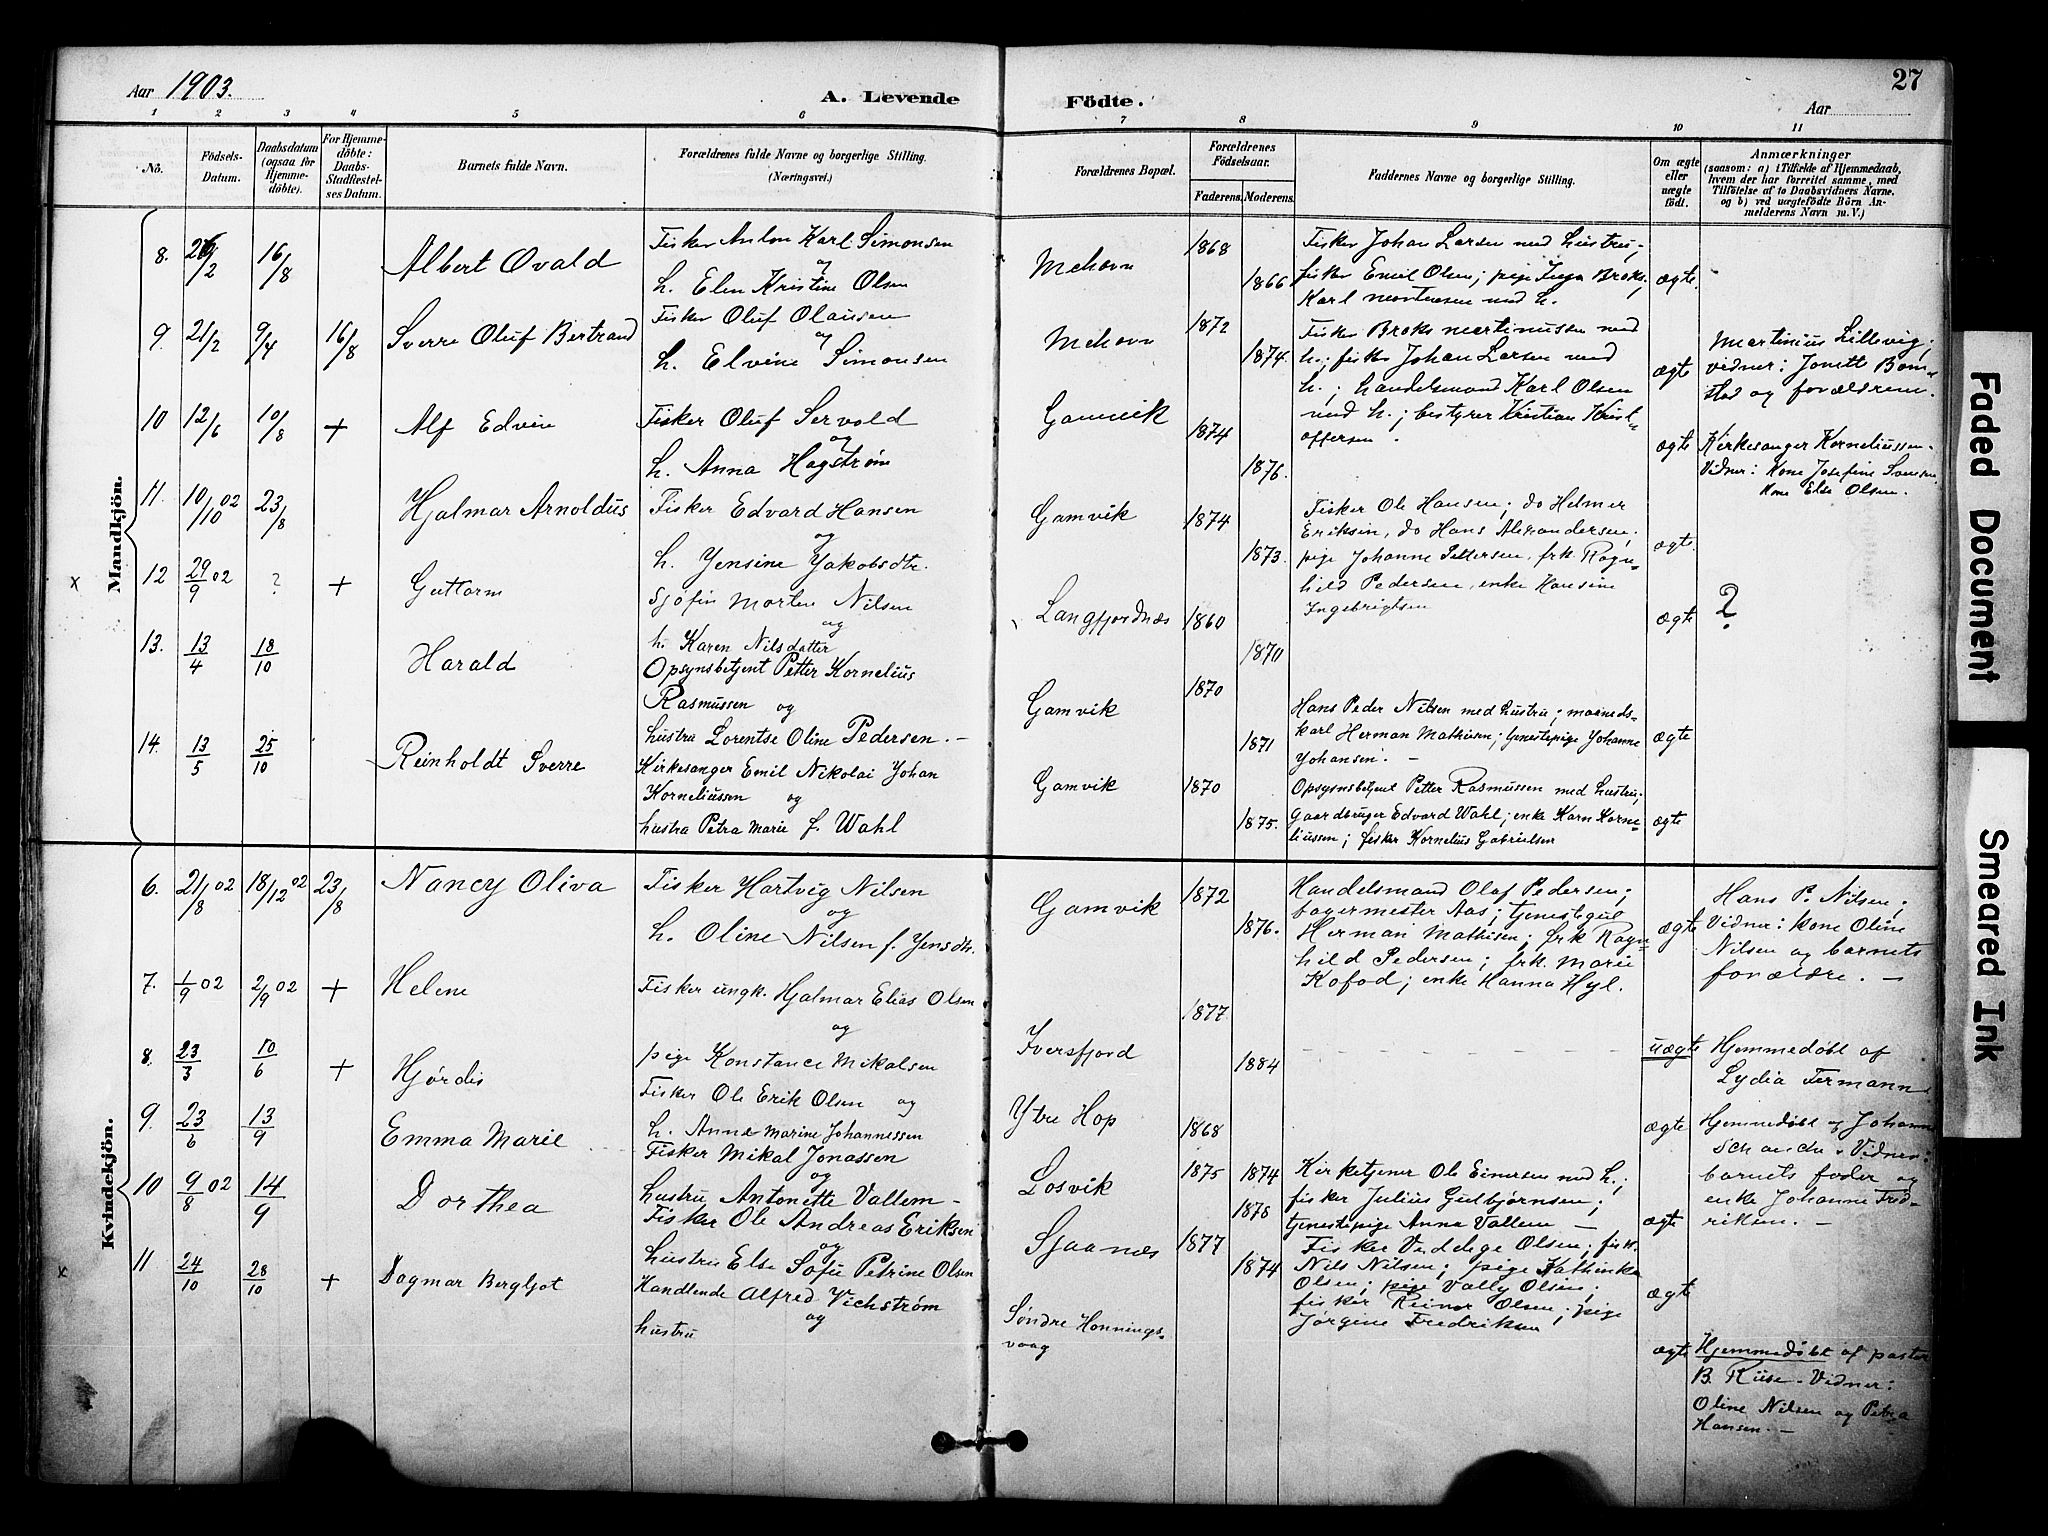 Aar 1903.
A. Levende Födte.
27
Aar
1 2 3 4 5 6 7 8 9 10 11
No.
Födsels-Datum.
Daabsdatum (ogsaa for Hjemme-döbte).
For Hjemme-döbte: Daabs-Stadfæstelses Datum.
Barnets fulde Navn.
Forældrenes fulde Navne og borgerlige Stilling.
(Næringsvei.)
Forældrenes Bopæl.
Forældrenes Födselsaar.
Faderens. Moderens.
Faddernes Navne og borgerlige Stilling.
Om ægte eller uægte födt.
Anmærkninger
(saasom: a) i Tilfælde af Hjemmedaab,
hvem der har forrettet samme, med
Tilföielse af to Daabsvidners Navne.
og b) ved uægtefödte Börn An-
melderens Navn m. V.)
Mandkjön.
8. 26/2 16/8 Albert Ovald
Fisker Anton Karl Simonsen
og
h. Elen Kristine Olsen
Mehavn 1868 1866
Fisker Johan Larsen med hustru;
fisker Emil Olsen; pige Inga Broks;
Karl Mortensen med h.
ægte.
9. 21/2 9/4 16/8 Sverre Oluf Bertrand
Fisker Oluf Olausen
og
h. Elvine Simonsen
Mehavn 1872 1874.
Fisker Broks Martinussen med
h.; fisker Johan Larsen med
h.; handelsmand Karl Olsen
med h.; bestyrer Kristian Krist-
offersen.
ægte
Martinius Lillevig;
vidner: Jonette Bom-
stad og forældrene.
10 12/6 10/8 + Alf Edvin
Fisker Oluf Servold
og
h. Anna Hagstrøm
Gamvik 1874 1876.
ægte
Kirkesanger Korneliussen.
Vidner: Kone Josefine Svensen
Kone Else Olsen.
11. 10/10 02 23/8 Hjalmar Arnoldus
Fisker Edvard Hansen
og
h. Jensine Jakobsdtr.
Gamvik 1874 1873.
Fisker Ole Hansen; do Helmer
Eriksen, do Hans Alexandersen;
pige Johanne Pettersen, frk. Ragn-
hild Pedersen, enke Hansine
Ingebrigtsen
ægte.
x 12 29/9 02 ? + Guttorm
Sjøfin Morten Nilsen
og
h. Karen Nilsdatter
Langfjordnæs 1860 1870
ægte
?
13. 13/4 18/10 Harald
Opsynsbetjent Petter Kornelius
Rasmussen og
hustru Lorentse Oline Pedersen. -
Gamvik 1870 1871
Hans Peder Nilsen med hustru; maaneds-
karl Herman Mathisen; tjenestepige Johanne
Johansen. -
ægte
14. 13/5 25/10 Reinholdt Sverre
Kirkesanger Emil Nikolai Johan
Korneliussen og
hustru Petra Marie f. Wahl
Gamvik 1870 1875.
Opsynsbetjent Petter Rasmussen med hustru;
Gaardbruger Edvard Wahl; enke Karn Korne-
liussen; fisker Kornelius Gabrielsen
ægte
Kvindekjön.
6. 21/8 02 18/12 02 23/8 Nancy Oliva
Fisker Hartvig Nilsen
og
h. Oline Nilsen f. Jensdtr.
Gamvik 1872 1876.
Handelsmand Olaf Pedersen;
bagermester Aas; tjenestegut
Herman Mathisen; frk Ragn-
hild Pedersen; frk. Marie
Kofod; enke Hanna Hyl.
ægte
Hans P. Nilsen;
Vidner: kone Oline
Nilsen og barnets
forældre. -
7. 1/9 02 2/9 02 + Helene
Fisker ungk. Hjalmar Elias Olsen
og
pige Konstance Mikalsen
Iversfjord 1877 1884
uægte
Hjemmedøbt af
Lydia Fermann
8. 23/3 10/6 + Hjørdis
Fisker Ole Erik Olsen og
h. Anne Marine Johannessen
Ytre Hop 1868 1874
ægte
Hjemmedøbt af Johanne
Schanche. Vidner:
barnets fader og
enke Johanne Fred-
riksen. -
9. 23/6 13/9 Emma Marie
Fisker Mikal Jonassen
og
hustru Antonette Vallem -
Losvik 1875 1878
Kirketjener Ole Einersen med h.;
fisker Julius Gulbjørnsen;
tjenestepige Anna Vallem -
ægte
10 9/8 02 14/9 Dorthea
Fisker Ole Andreas Eriksen
og
hustru Else Sofie Petrine Olsen
Sjaanæs 1877 1874
Fisker Veddege Olsen; fisk.
Nils Nilsen; pige Kathinka
Olsen; pige Vally Olsen;
fisker Reinor Olsen; pige
Jørgine Fredriksen
ægte
x 11 24/10 28/10 + Dagmar Bergljot
Handlende Alfred Vichstrøm
og
hustru
Søndre Honnings-
vaag
ægte
Hjemmedøbt af pastor
B. Riise. Vidner:
Oline Nilsen og Petra
Hansen. -
Faded Document
Smeared Ink